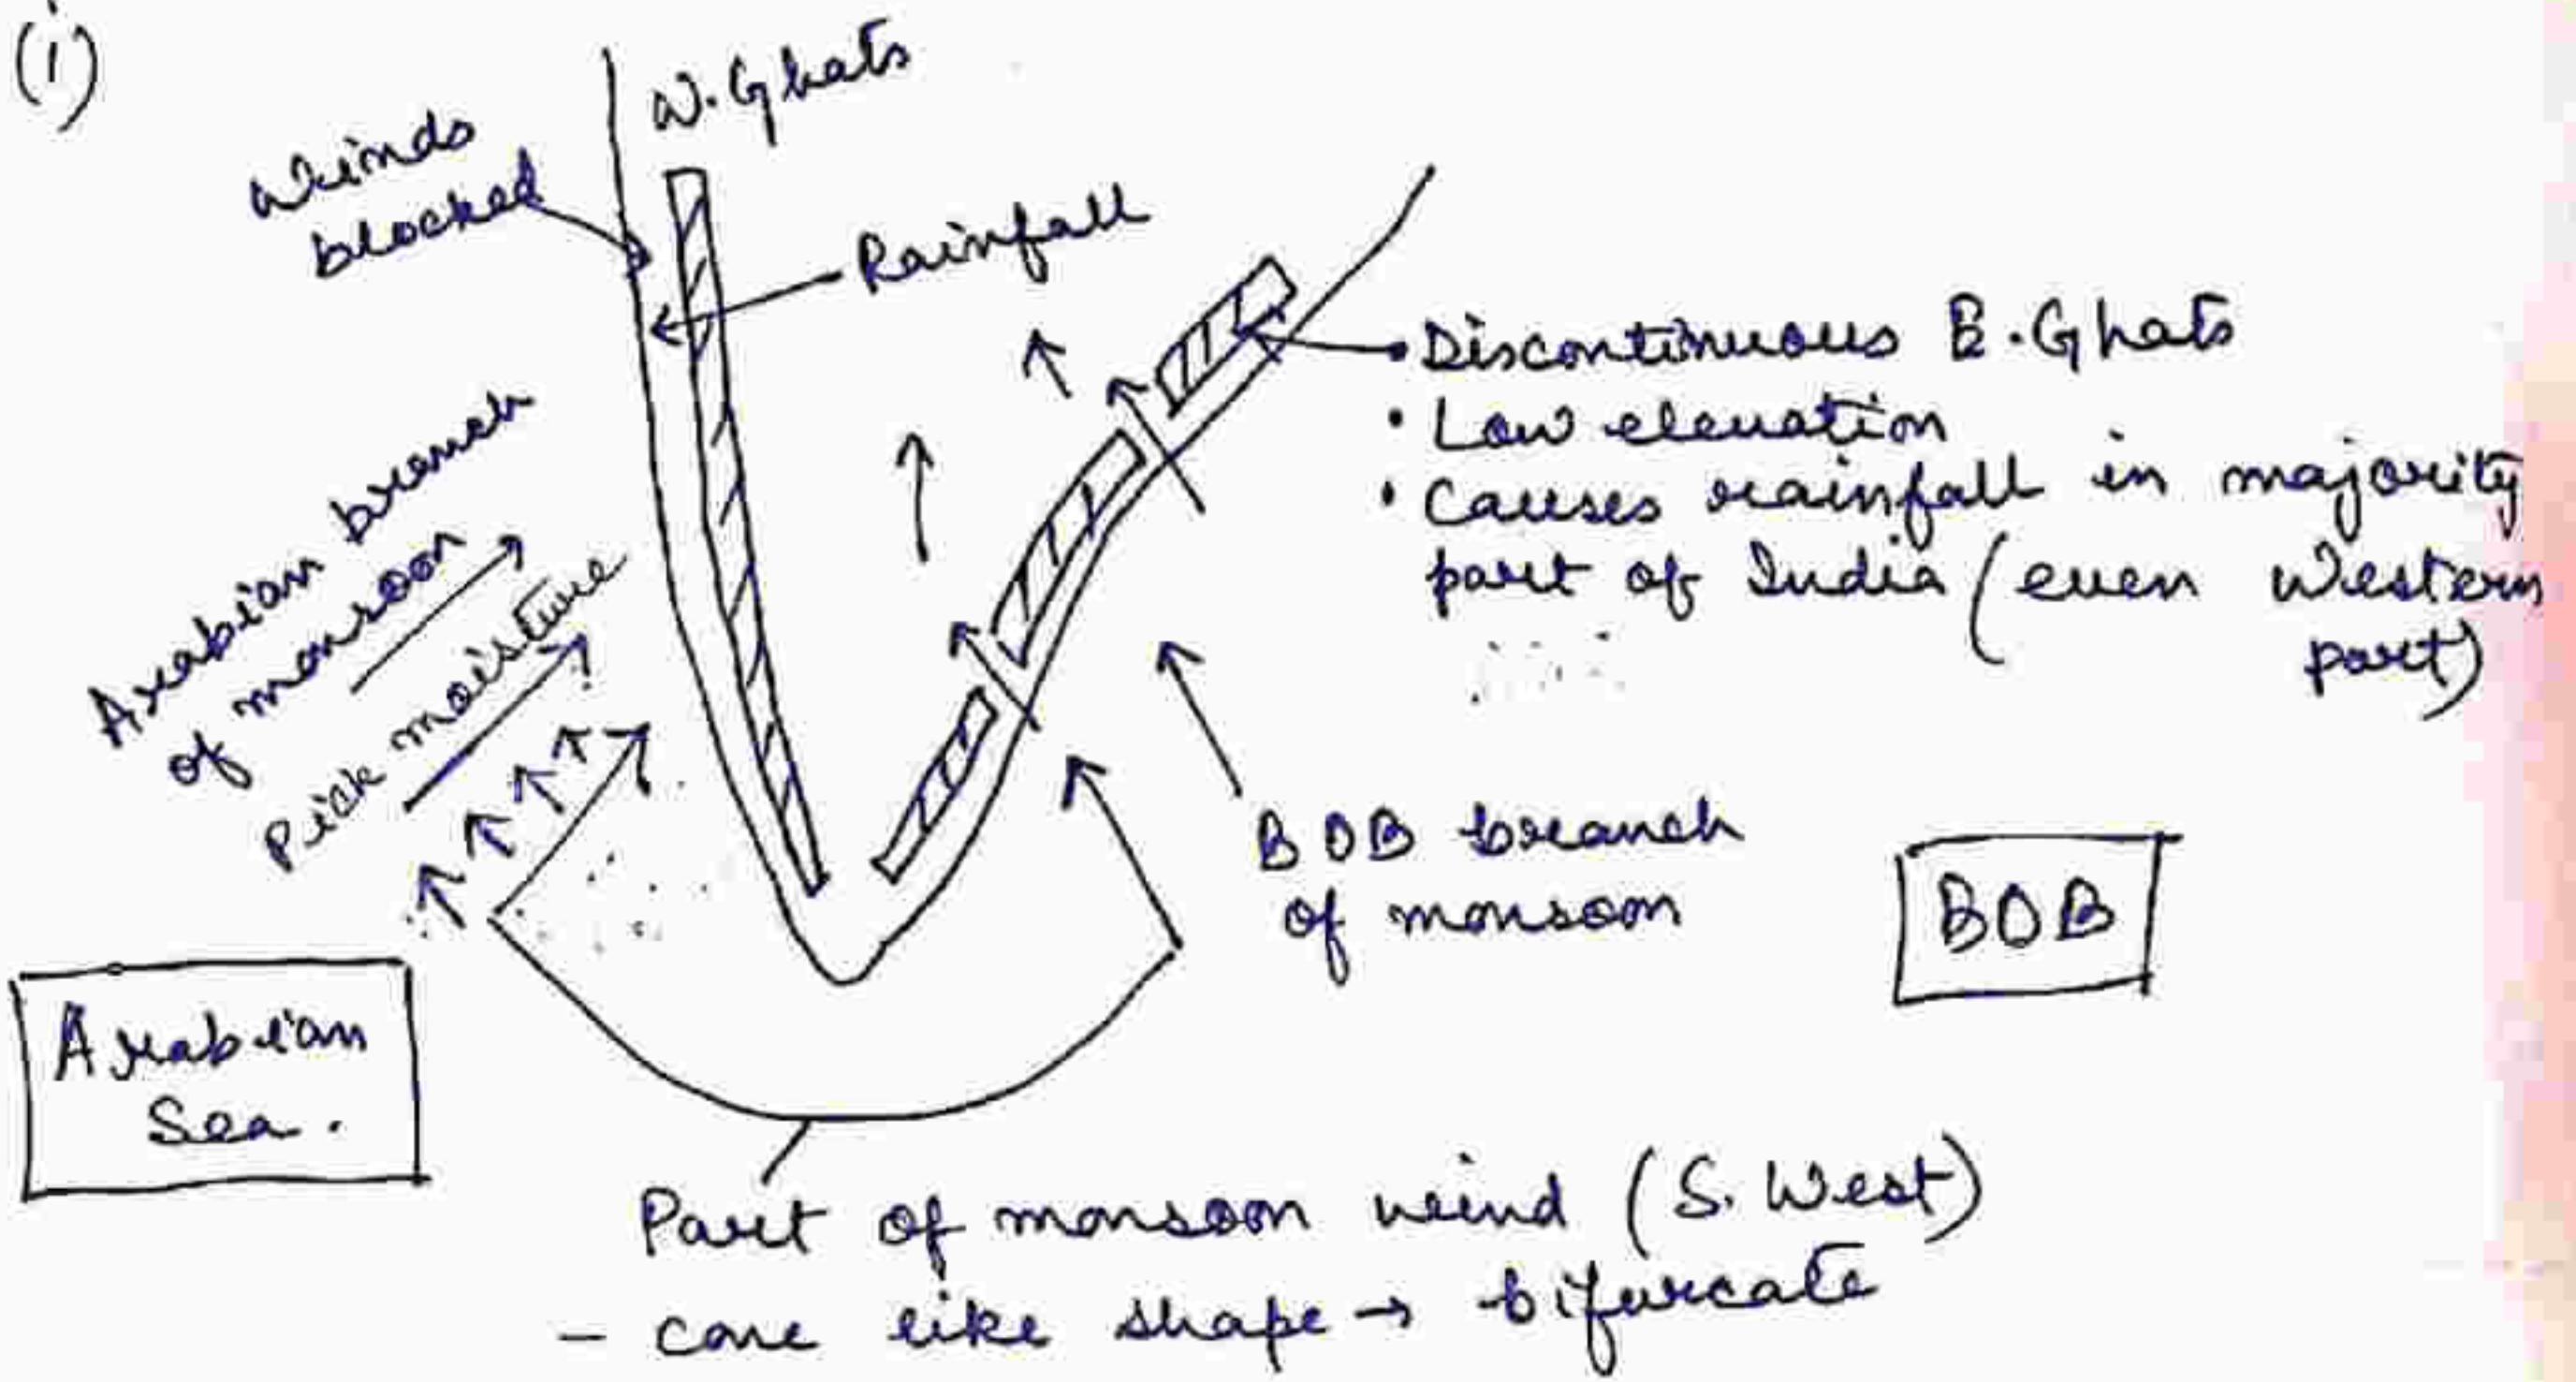 (i)
W. Ghats
Winds
blocked
Rainfall
• Discontinuous E. Ghats
• Low elevation
• Causes rainfall in majority
part of India (even Western
part)
Arabian branch
of monsoon
Pick moisture
BOB branch
of monsoon
BOB
Arabian
Sea.
Part of monsoon wind (S. West)
- cone like shape → bifurcate